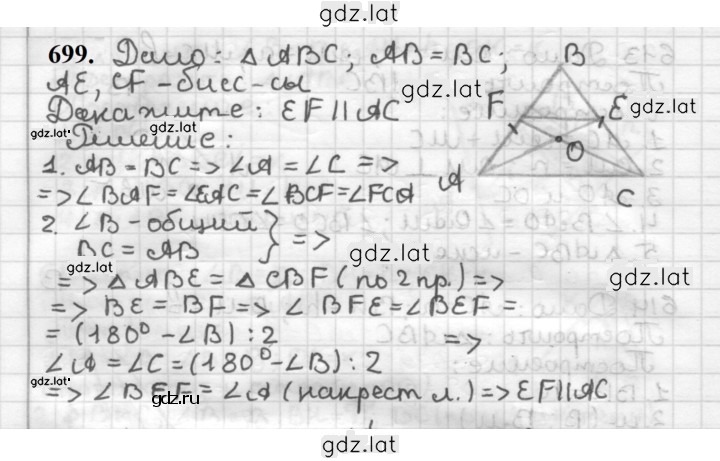 gdz.lat
699. Дано: △ ABC; AB = BC;
AE, CF - бисс-сы
Докажите: EF || AC
gdz.lat gdz.lat
Решение:
1. AB = BC => ∠A = ∠C =>
=> ∠BAF = ∠EAC = ∠BCF = ∠FCA
2. ∠B - общий
BC = AB } =>
gdz.lat gdz.lat
=> △ ABE = △ CBF (по 2 пр.) =>
=> BE = BF => ∠BFE = ∠BEF =
= (180° - ∠B) : 2 =>
∠A = ∠C = (180° - ∠B) : 2
gdz.lat gdz.lat
=> ∠BEF = ∠A (накрест л.) => EF || AC
gdz.lat
B
F E
gdz.lat
O
A
C
gdz.lat